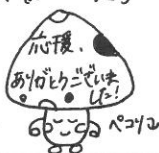 応援、
ありがとうございま
した!
ペコリ